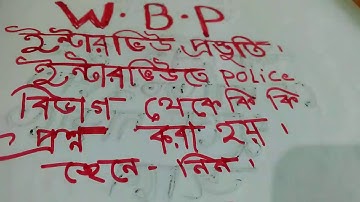 W.B.P
ইন্টারভিউ প্রস্তুতি।
ইন্টারভিউতে police
বিভাগ থেকে কি কি
প্রশ্ন করা হয়।
জেনে - নিন।